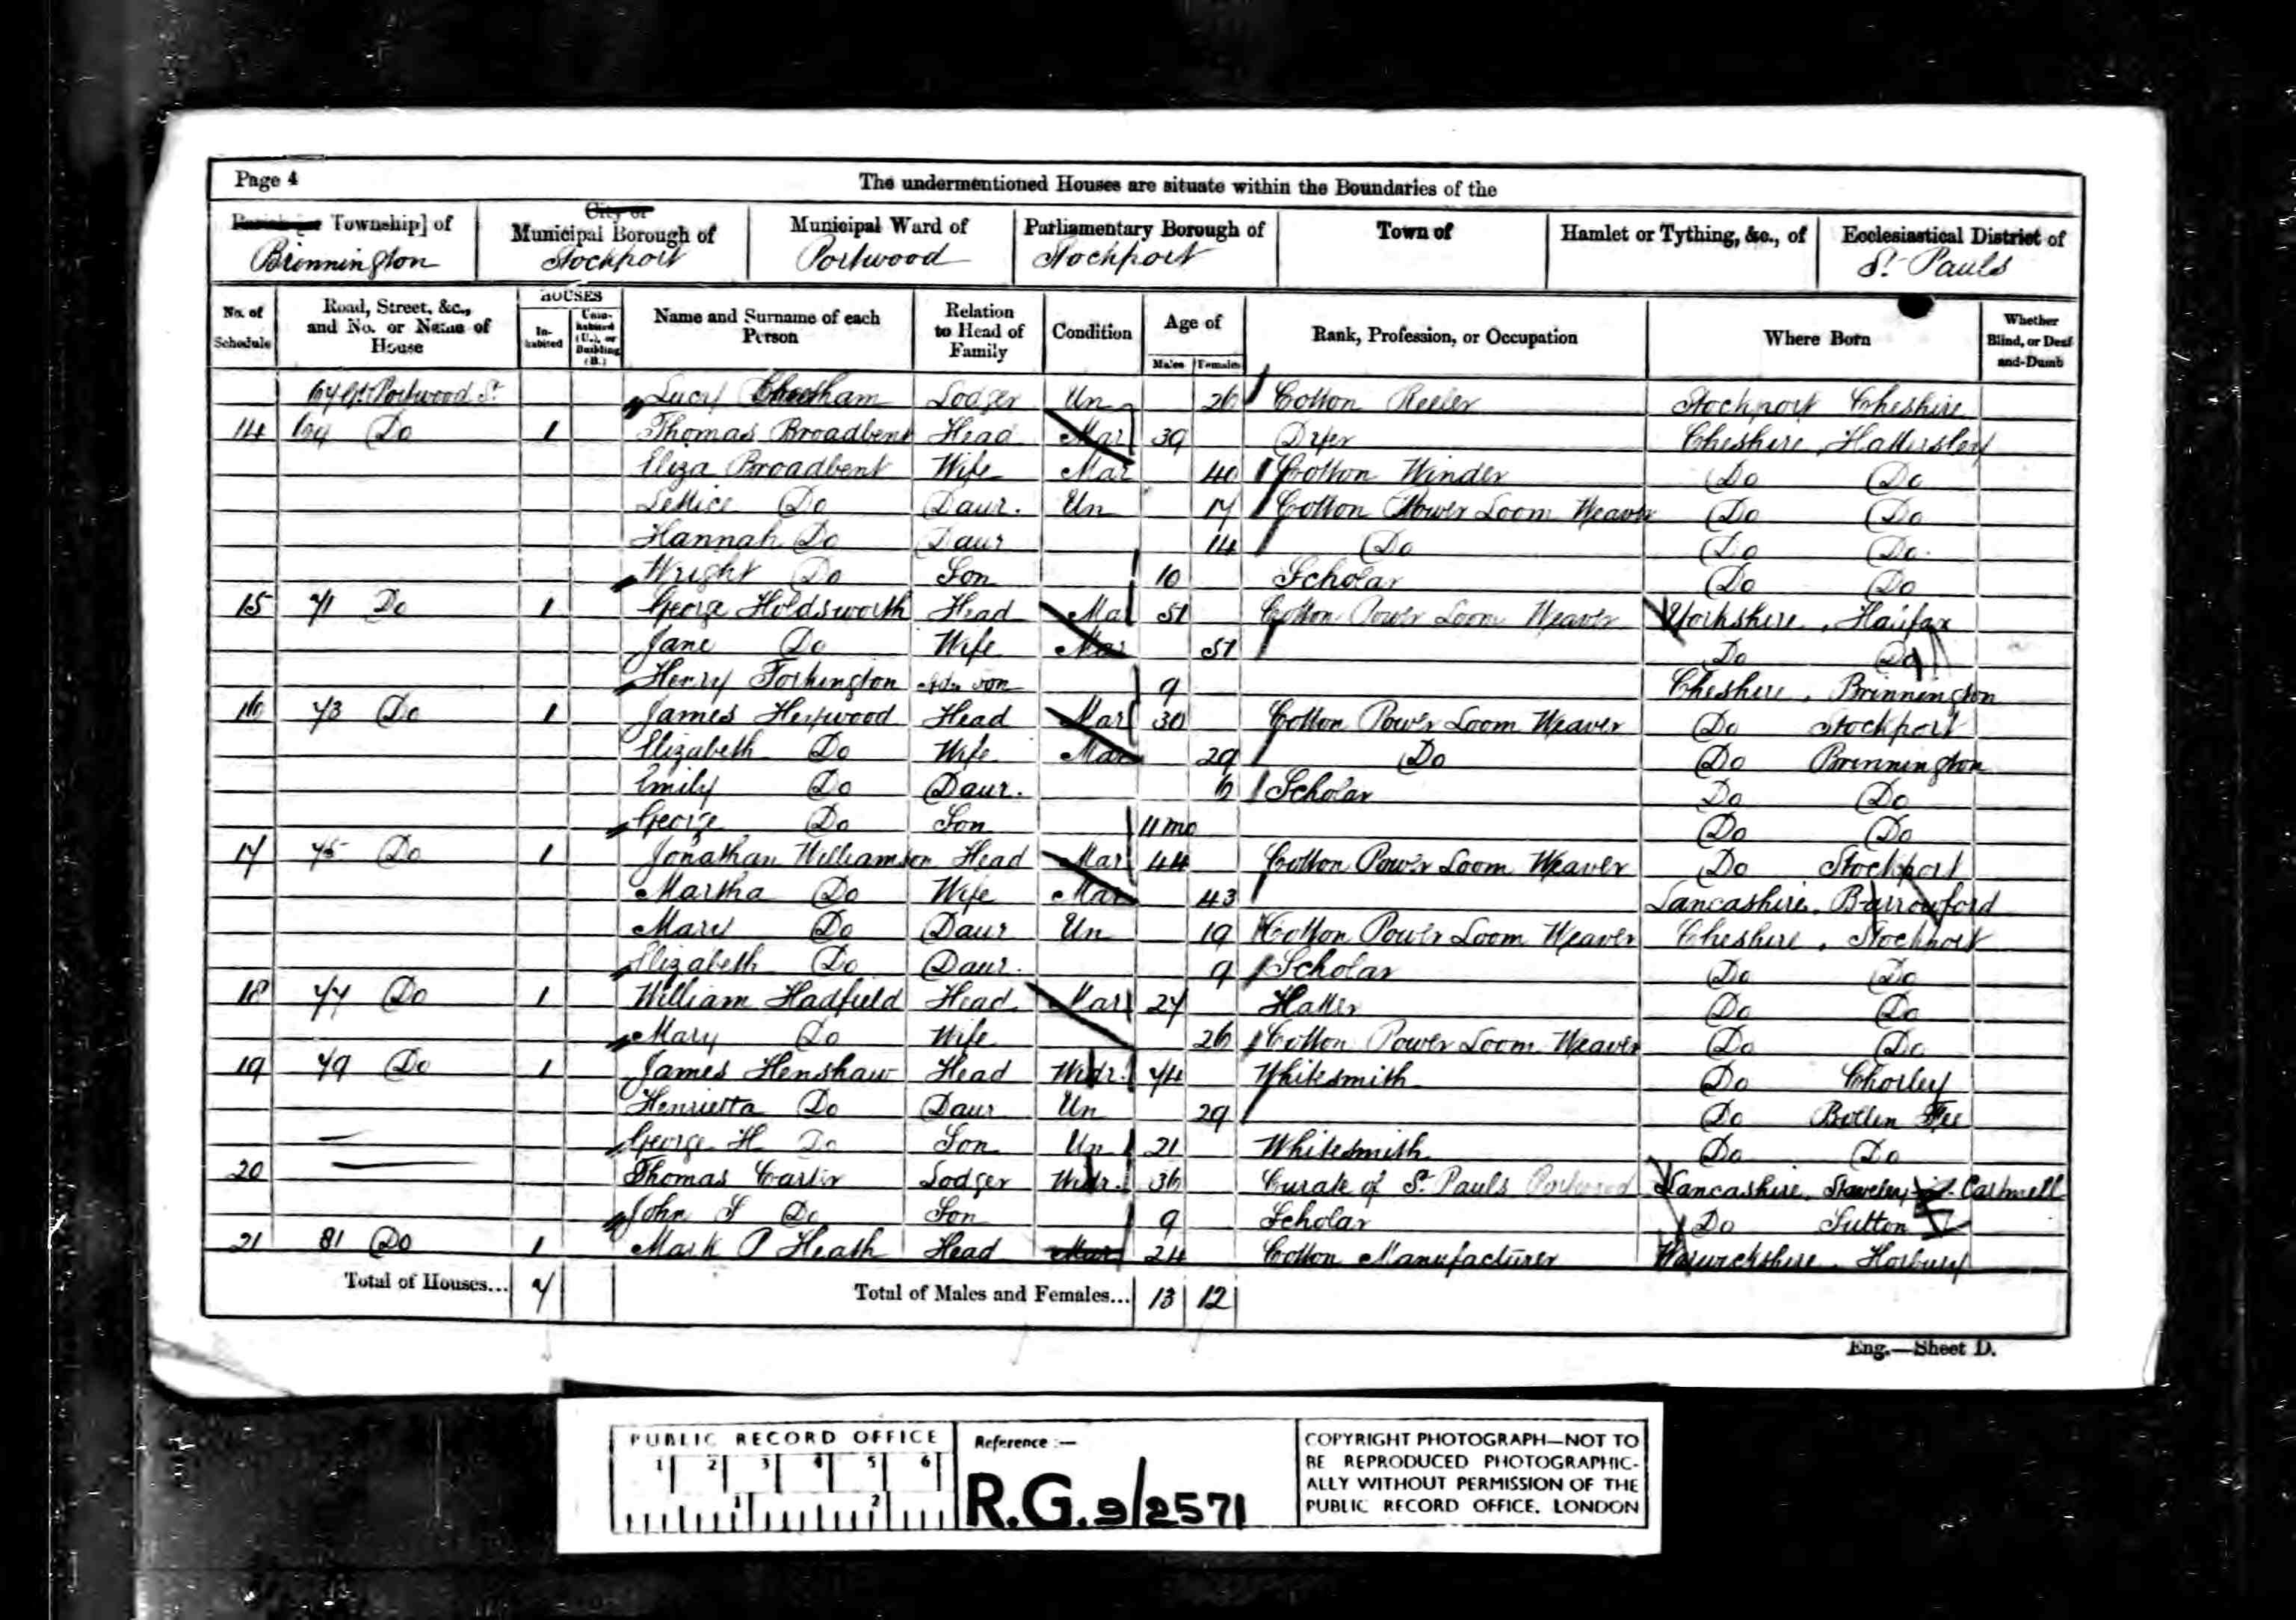 Page 4
The undermentioned Houses are situate within the Boundaries of the
Township] of
Brinnington
City or Municipal Borough of
Stockport
Municipal Ward of
Portwood
Parliamentary Borough of
Stockport
Town of
Hamlet or Tything, &c., of
Ecclesiastical District of
St Pauls
No. of Schedule
Road, Street, &c., and No. or Name of House
HOUSES
In-habited
Unin-habited (U.), or Building (B.)
Name and Surname of each Person
Relation to Head of Family
Condition
Age of
Males
Females
Rank, Profession, or Occupation
Where Born
Whether Blind, or Deaf-and-Dumb
67 Gt Portwood St Lucy Cheetham Lodger Un 26 Cotton Reeler Stockport Cheshire
14 69 Do 1 Thomas Broadbent Head Mar 39 Dyer Cheshire, Hattersley
Eliza Broadbent Wife Mar 40 Cotton Winder Do Do
Lettice Do Daur. Un 17 Cotton Power Loom Weaver Do Do
Hannah Do Daur 14 Do Do Do
Wright Do Son 10 Scholar Do Do
15 71 Do 1 George Holdsworth Head Mar 51 Cotton Power Loom Weaver Yorkshire, Haifax
Jane Do Wife Mar 51 Do Do
Henry Torkington Son 9 Cheshire, Brinnington
16 73 Do 1 James Heywood Head Mar 30 Cotton Power Loom Weaver Do Stockport
Elizabeth Do Wife Mar 29 Do Do Brinnington
Emily Do Daur. 6 Scholar Do Do
George Do Son 11 mo Do Do
17 75 Do 1 Jonathan Williamson Head Mar 44 Cotton Power Loom Weaver Do Stockport
Martha Do Wife Mar 43 Lancashire, Barrowford
Mary Do Daur Un 19 Cotton Power Loom Weaver Cheshire, Stockport
Elizabeth Do Daur. 9 Scholar Do Do
18 77 Do 1 William Hadfield Head Mar 27 Hatter Do Do
Mary Do Wife 26 Cotton Power Loom Weaver Do Do
19 79 Do 1 James Henshaw Head Widr. 74 Whitesmith Do Chorley
Henrietta Do Daur Un 29 Do Bollin Fee
George H Do Son Un 21 Whitesmith Do Do
20 Thomas Carter Lodger Widr. 36 Curate of St Pauls Portwood Lancashire, Staveley Cartmell
John S Do Son 9 Scholar Do Sutton
21 81 Do 1 Mark P Heath Head Mar 24 Cotton Manufacturer Warwickshire, Horbury
Total of Houses... 7
Total of Males and Females... 13 12
Eng.—Sheet D.
PUBLIC RECORD OFFICE
1 2 3 4 5 6
1 2
Reference :—
R.G. 9/2571
COPYRIGHT PHOTOGRAPH—NOT TO
BE REPRODUCED PHOTOGRAPHIC-
ALLY WITHOUT PERMISSION OF THE
PUBLIC RECORD OFFICE, LONDON